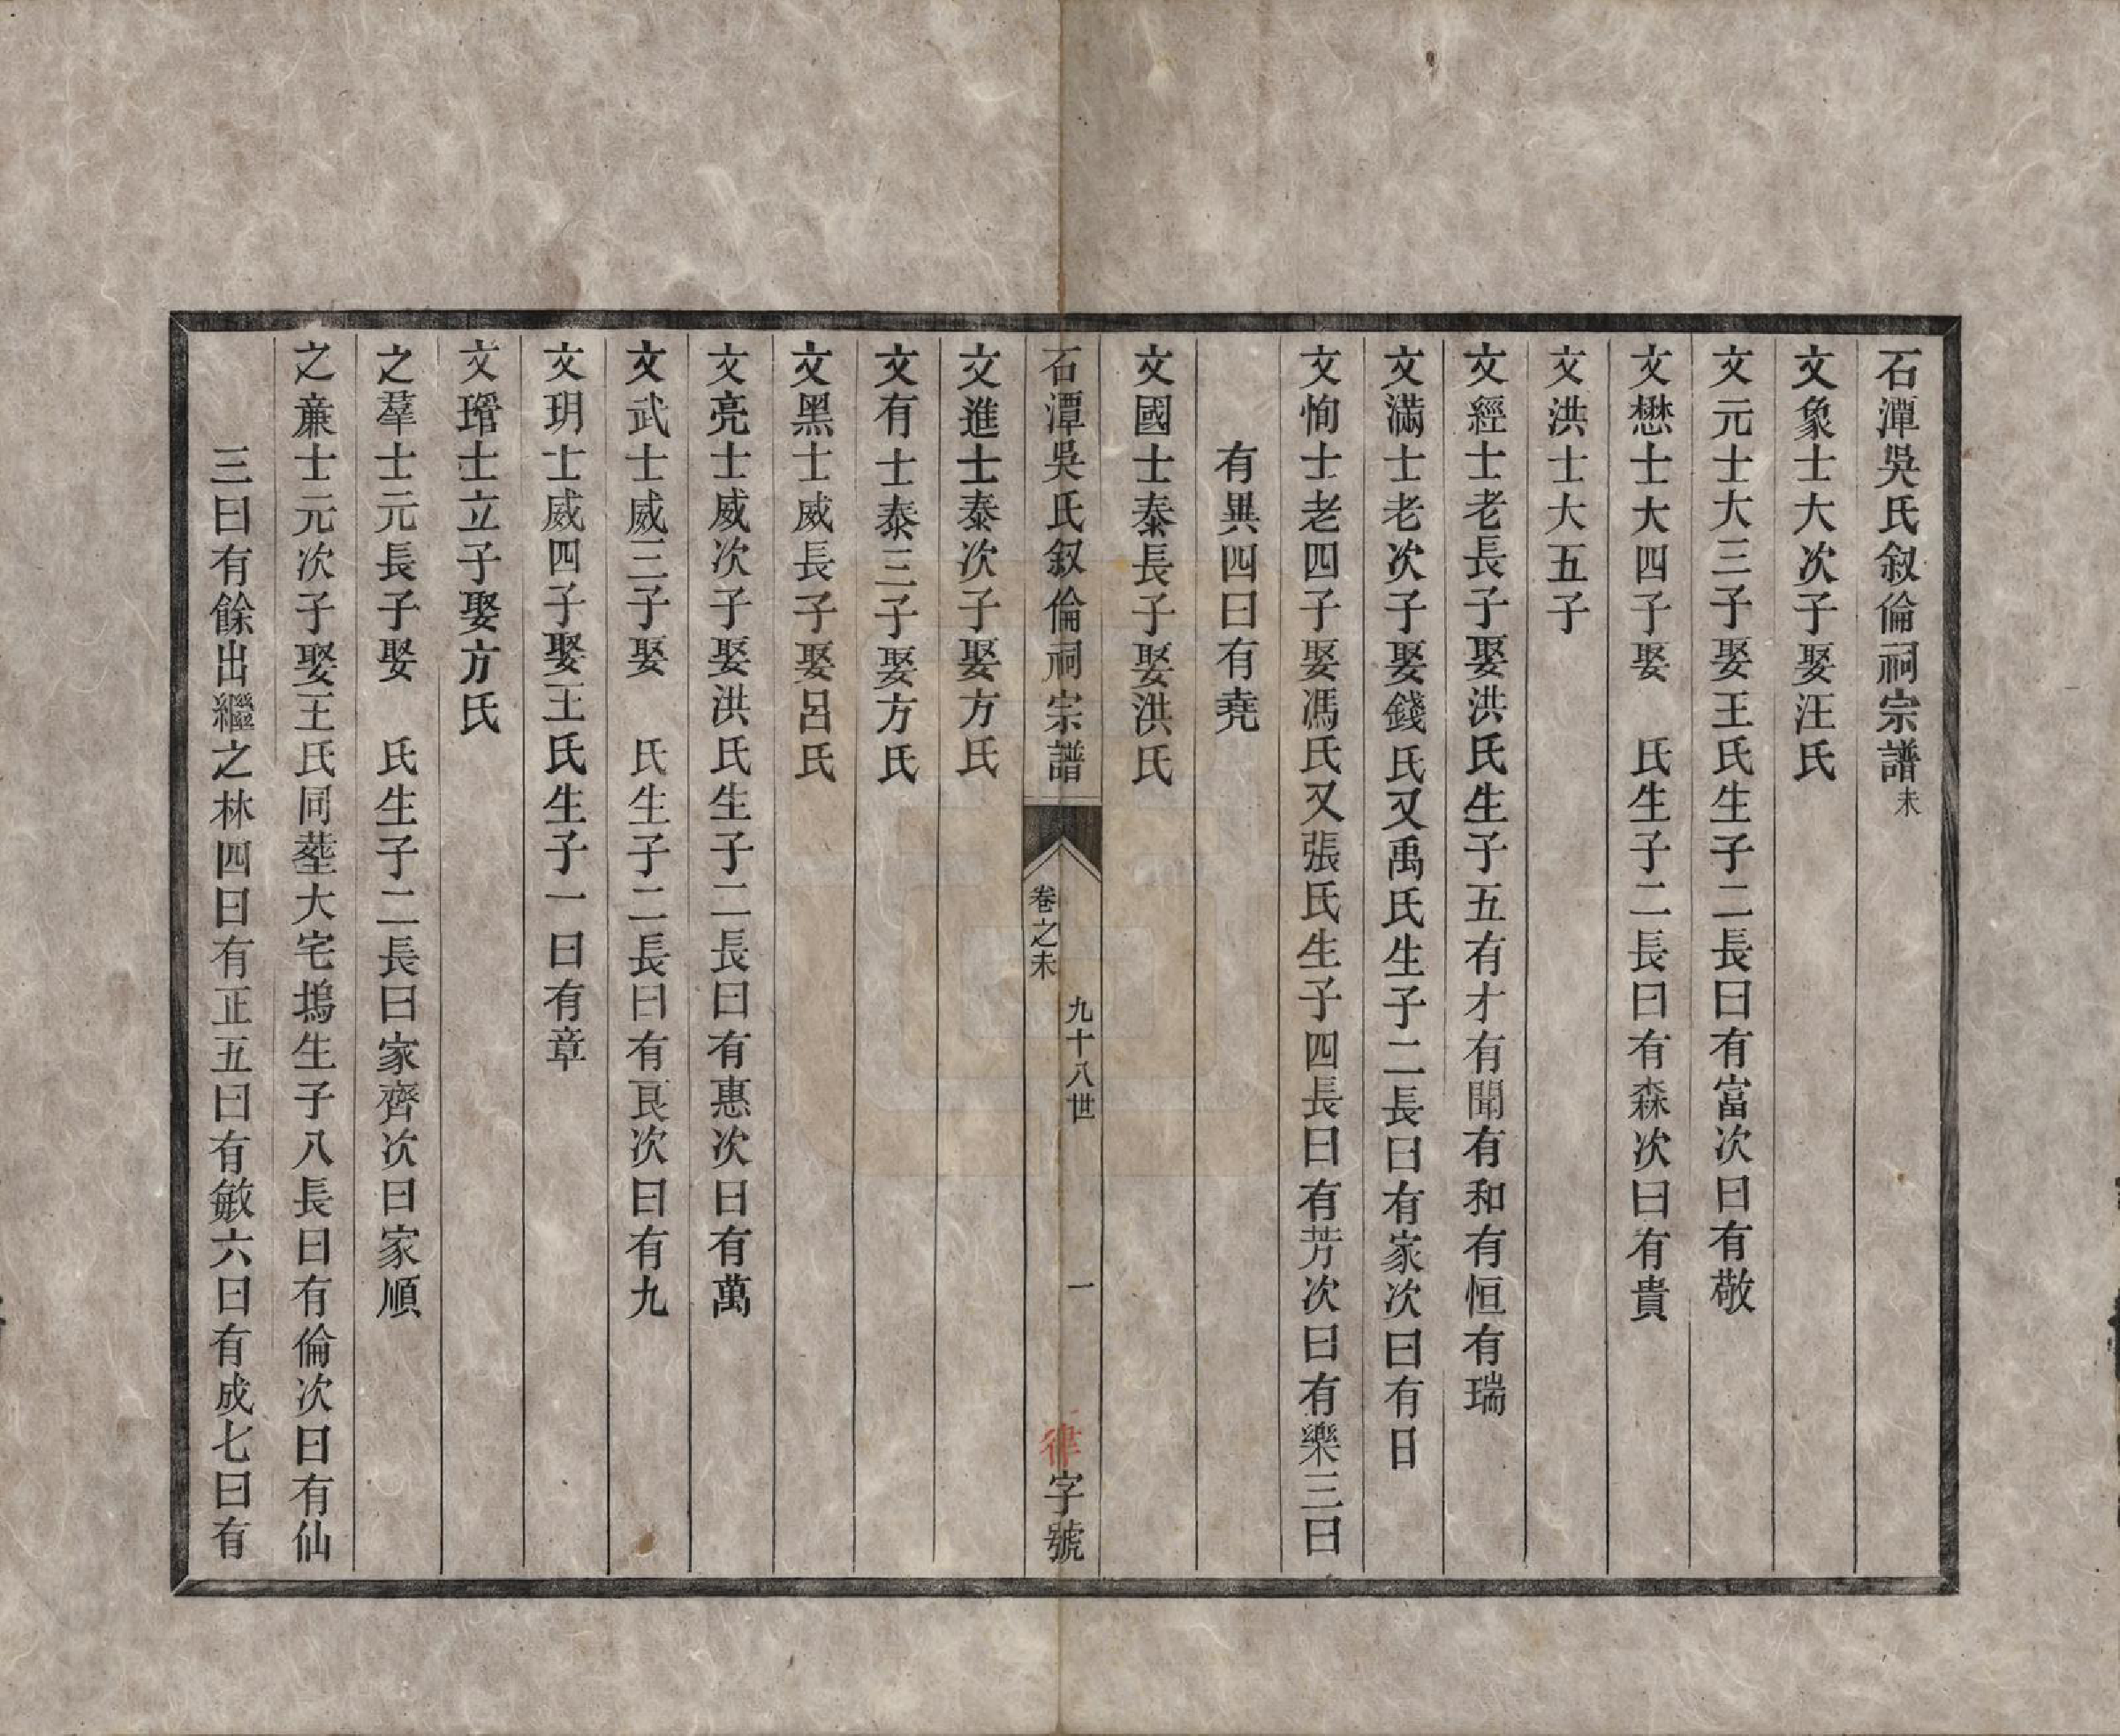 石潭吳氏叙倫祠宗譜未
文象士大次子娶汪氏
文元士大三子娶王氏生子二長曰有富次曰有敬
文懋士大四子娶　氏生子二長曰有森次曰有貴
文洪士大五子
文經士老長子娶洪氏生子五有才有聞有和有恒有瑞
文滿士老次子娶錢氏又禹氏生子二長曰有家次曰有日
文恂士老四子娶馮氏又張氏生子四長曰有芳次曰有樂三曰
有異四曰有堯
文國士泰長子娶洪氏
石潭吳氏叙倫祠宗譜
卷之未
九十八世
一
律字號
文進士泰次子娶方氏
文有士泰三子娶方氏
文黑士威長子娶呂氏
文亮士威次子娶洪氏生子二長曰有惠次曰有萬
文武士威三子娶　氏生子二長曰有良次曰有九
文玥士威四子娶王氏生子一曰有章
文瑨士立子娶方氏
之羣士元長子娶　氏生子二長曰家齊次曰家順
之亷士元次子娶王氏同塟大宅塢生子八長曰有倫次曰有仙
三曰有餘出繼之林四曰有正五曰有敏六曰有成七曰有